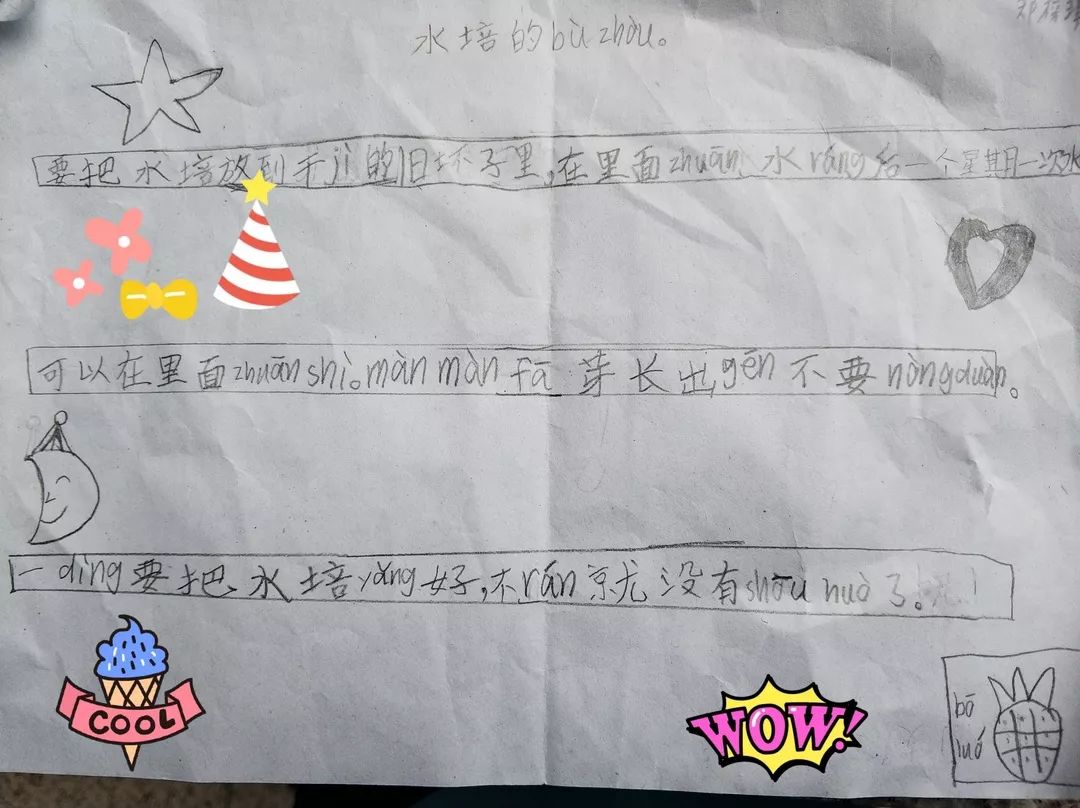 水培的bù zhòu。
要把水培放到手jì的旧坏子里,在里面zhuān水ráng后一个星期一次水
可以在里面zhuān shì。màn màn fā芽长出gēn不要nòng duàn。
一dìng要把水培yǎng好,不rán就没有shōu huò了。
COOL
WOW!
bō
luó